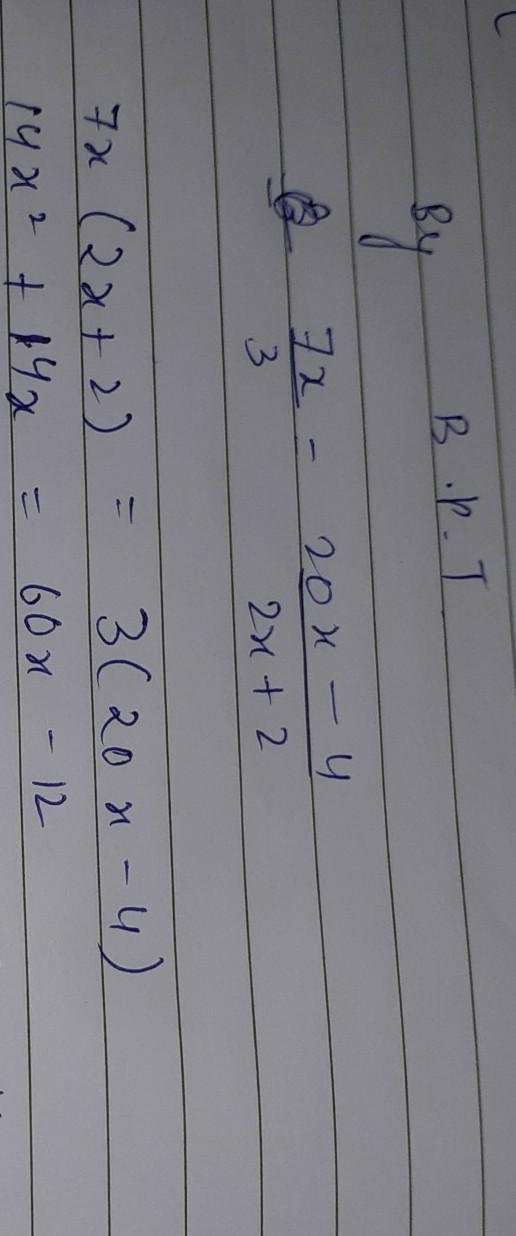 By B.P.T
7x/3 - 20x - 4/2x + 2
7x (2x + 2) = 3(20x - 4)
14x² + 14x = 60x - 12